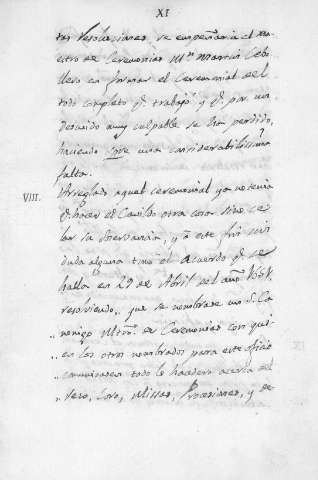 XI
tas resoluciones se empeñaria el Ma-
estro de Ceremonias Mn. Marcos Cebo-
llero en formar el Ceremonial del
todo completo q. trabajó y q. por un
descuido muy culpable se ha perdido,
haciendo una considerabilissima
falta.
VIII.
Arreglado aquel ceremonial ya no tenia
q. hacer el Cavildo otra cosa sino ce-
lar su observancia, y à este fin sin
duda alguna tomó el acuerdo q. se
halla en 29 de Abril del año
resolviendo, que se nombrase un S. Ca-
„ nonigo Mtro. de Ceremonias con qui-
„ en los otros nombrados para este oficio
„ comunicasen todo lo hacedero acerca del
„ Vezo, Coro, Missas, Procesiones, y de